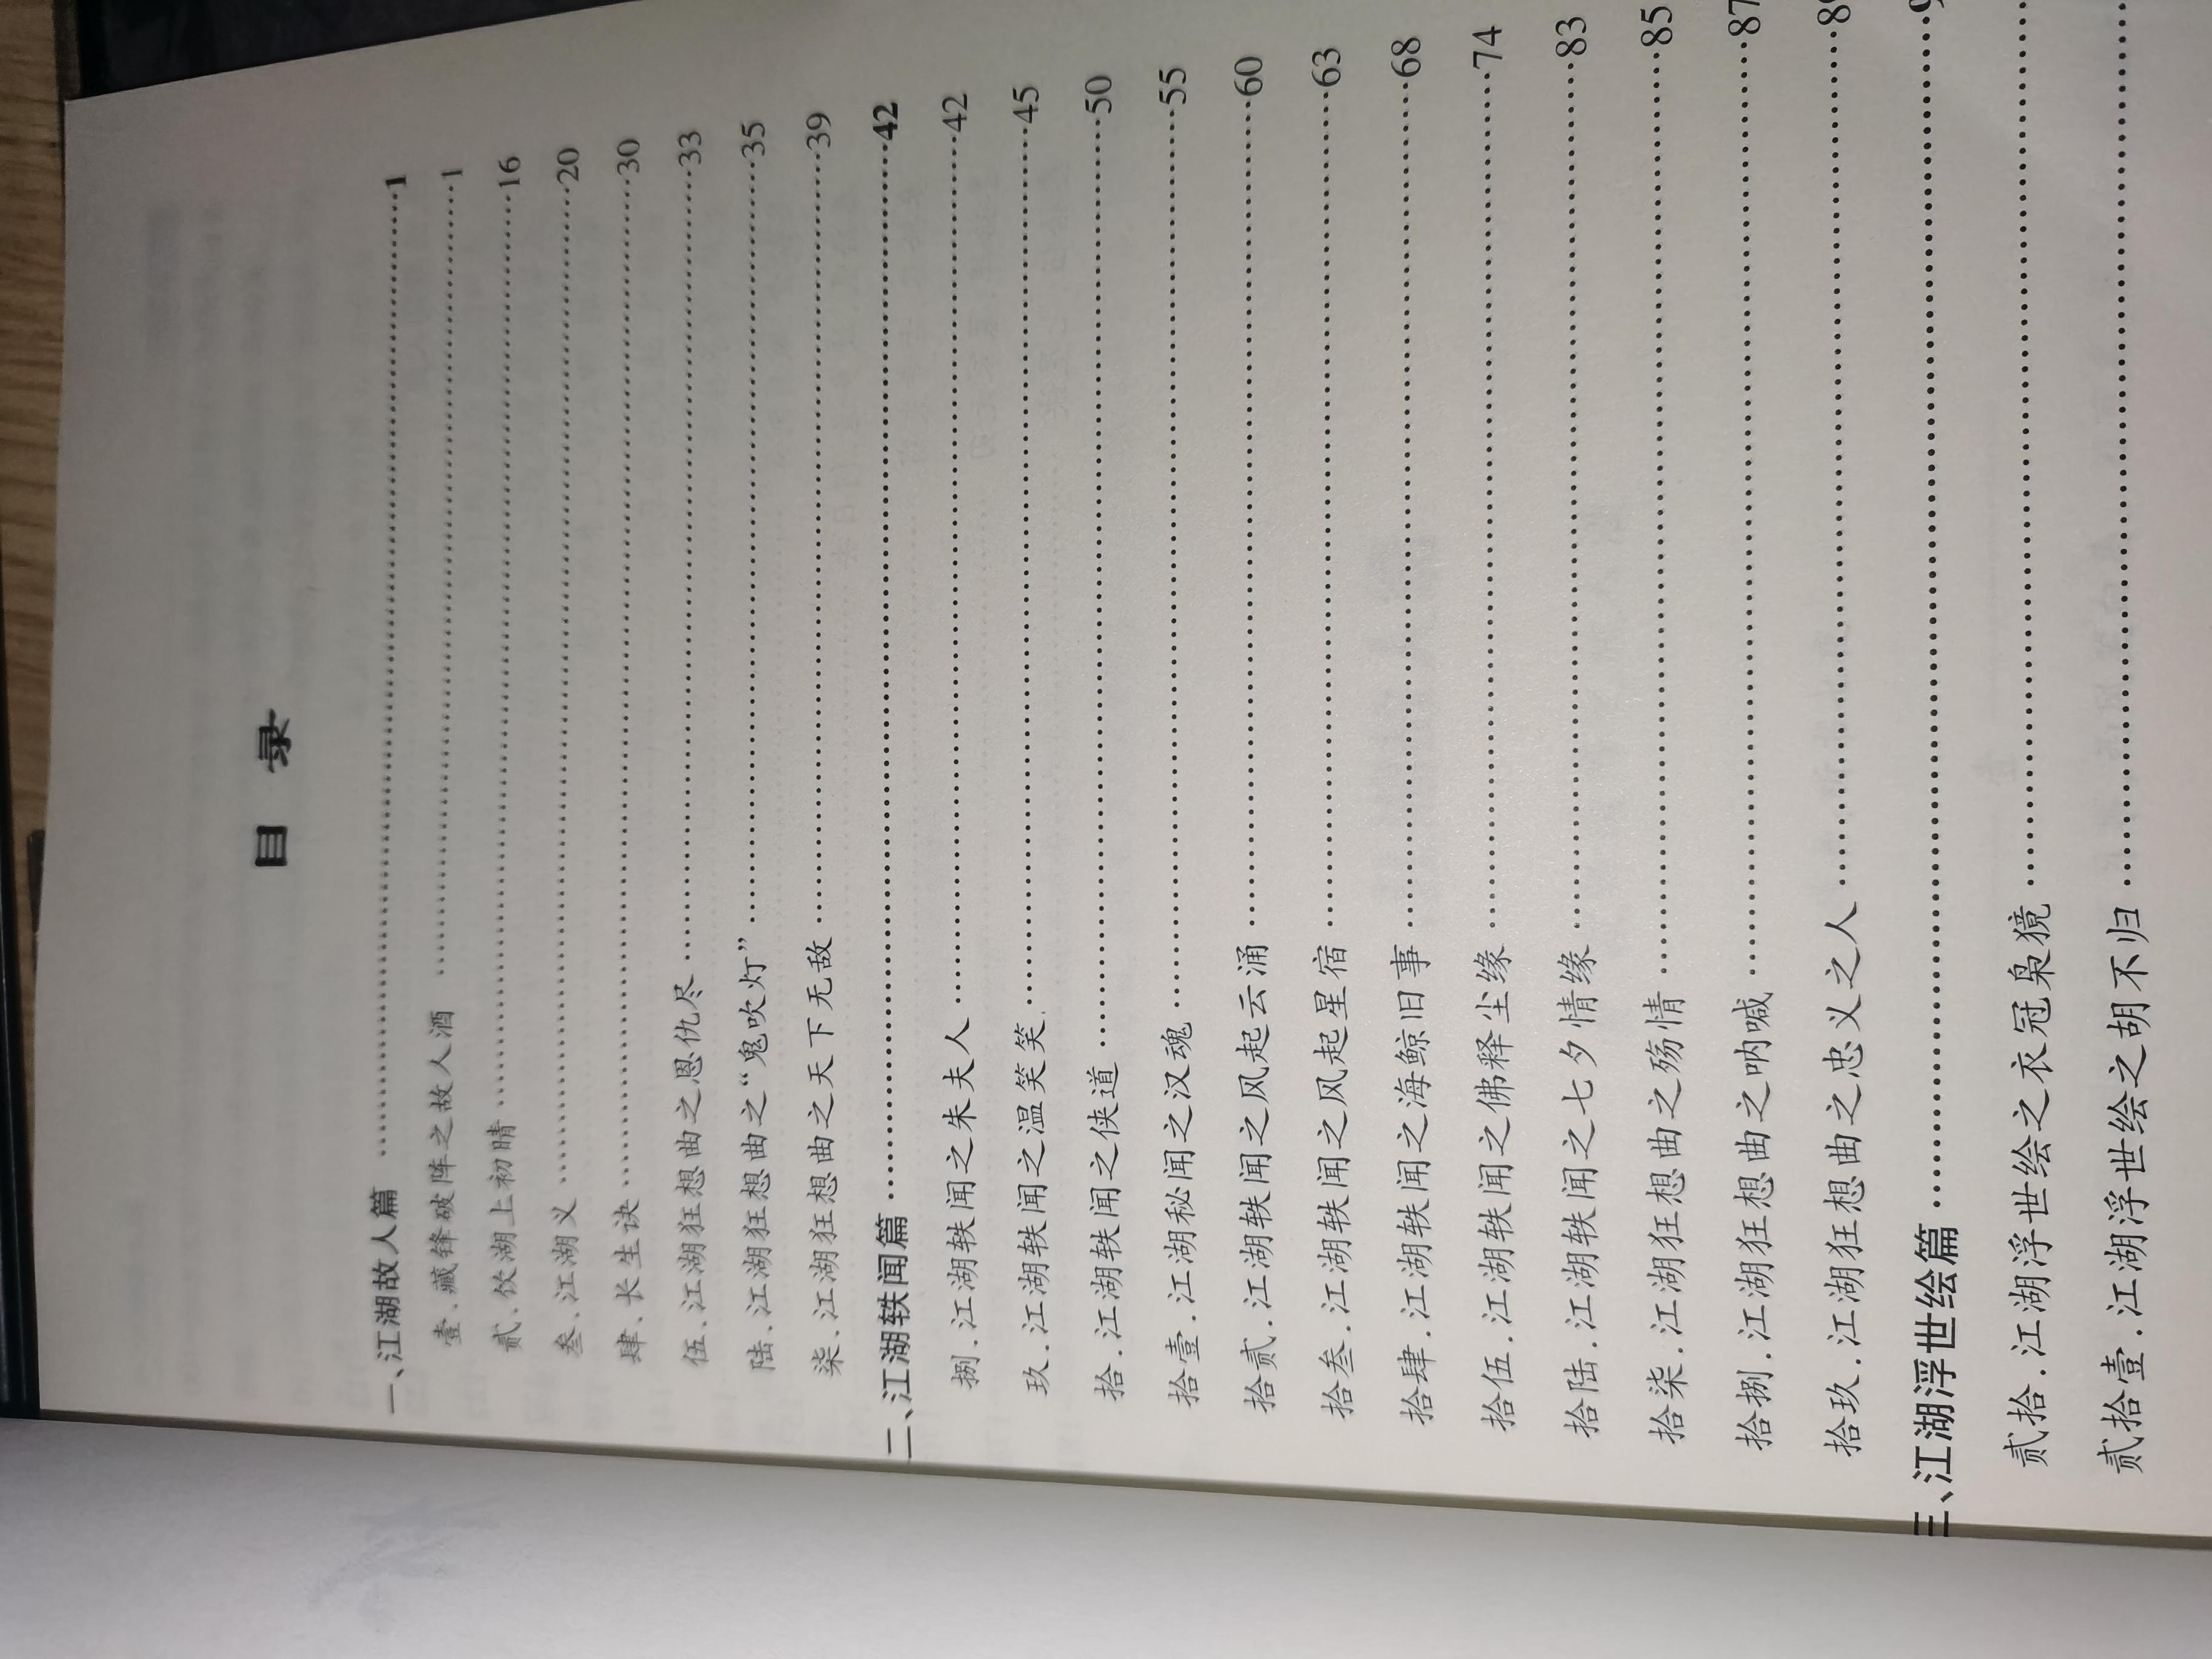 目 录
一、江湖故人篇……1
壹.藏锋破阵之故人酒……1
贰、饮湖上初晴……16
叁、江湖义……20
肆、长生诀……30
伍、江湖狂想曲之恩仇尽……33
陆、江湖狂想曲之“鬼吹灯”……35
柒、江湖狂想曲之天下无敌……39
二、江湖轶闻篇……42
捌.江湖轶闻之朱夫人……42
玖.江湖轶闻之温笑笑……45
拾.江湖轶闻之侠道……50
拾壹.江湖秘闻之汉魂……55
拾贰.江湖轶闻之风起云涌……60
拾叁.江湖轶闻之风起星宿……63
拾肆.江湖轶闻之海鲸旧事……68
拾伍.江湖轶闻之佛释尘缘……74
拾陆.江湖轶闻之七夕情缘……83
拾柒.江湖狂想曲之殇情……85
拾捌.江湖狂想曲之呐喊……87
拾玖.江湖狂想曲之忠义之人……8
三、江湖浮世绘篇……9
贰拾.江湖浮世绘之衣冠枭獍……
贰拾壹.江湖浮世绘之胡不归……